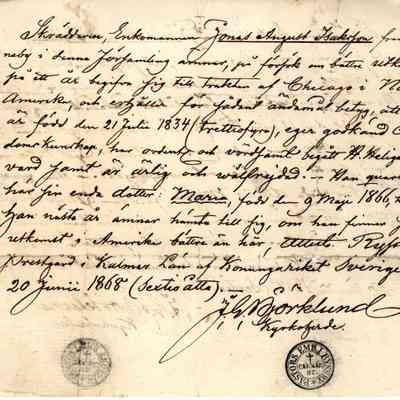 Skräddaren, Enkemannen Jonas August Isaksson fr
neby i denna Församling ämnar, på försök om bättre utk
på ett år begifva sig till trakten af Chicago i No
Amerika, och erhåller för sådant ändamål betyg, att
är född den 21 Julii 1834 (trettiofyra), eger godkänd C
domskunskap, har ordentl och vördsamt begått H. H. Natt
vard samt är ärlig och välfrejdad. — Han quar
har sin enda dotter: Maria, född den 9 Maji 1866, h
han nästa år ämnar hämta till sig, om han finner f
utkomst i Amerika bättre än här, attest. Ryss
prestgård i Kalmar Län af Konungariket Sverige
20 Junii 1868 (Sextioåtta). —
J. G. Björklund
Kyrkoherde.
PASTORS EMB.